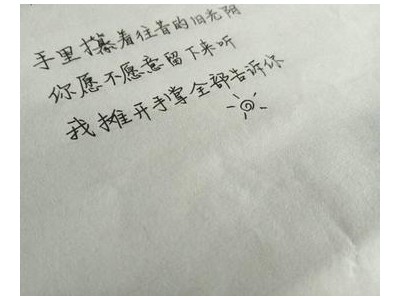 手里攥着往昔的旧光阴
你愿不愿意留下来听
我摊开手掌全部告诉你